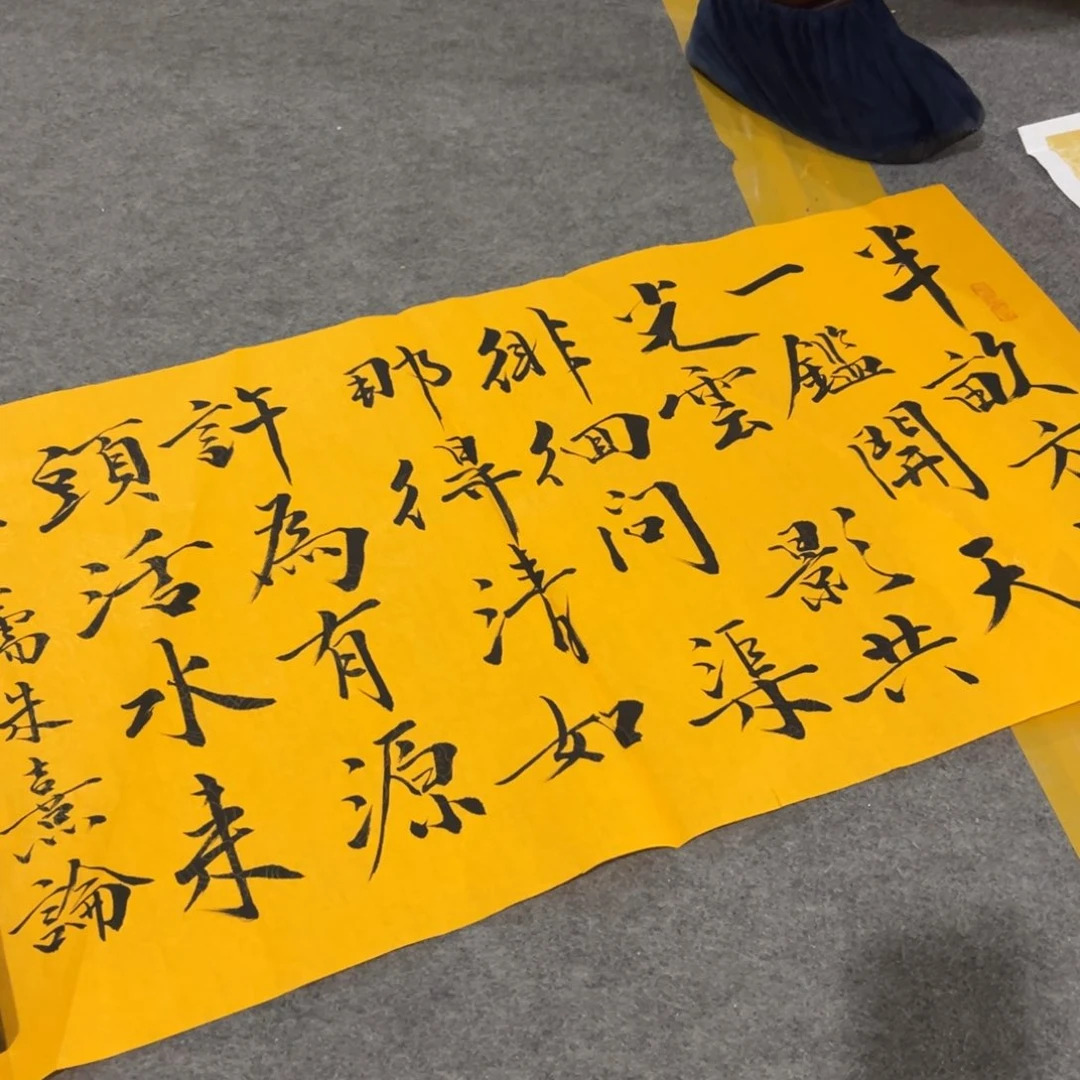 半畝方
一鑑開天
光雲影共
徘徊問渠
那得清如
許為有源
頭活水来
朱熹論